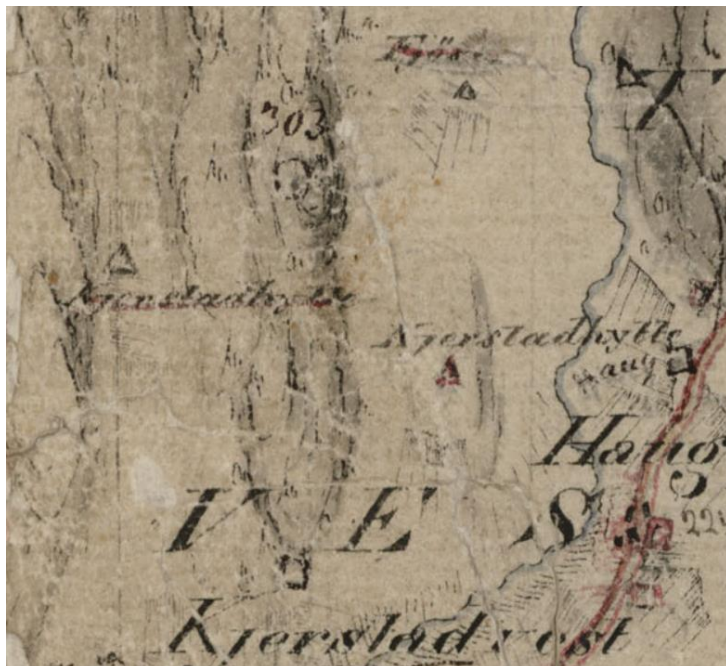 303
Kjerstadhytte
Kjerstadhytte
Haug
Haug
V E S
22
Kjerstad vest